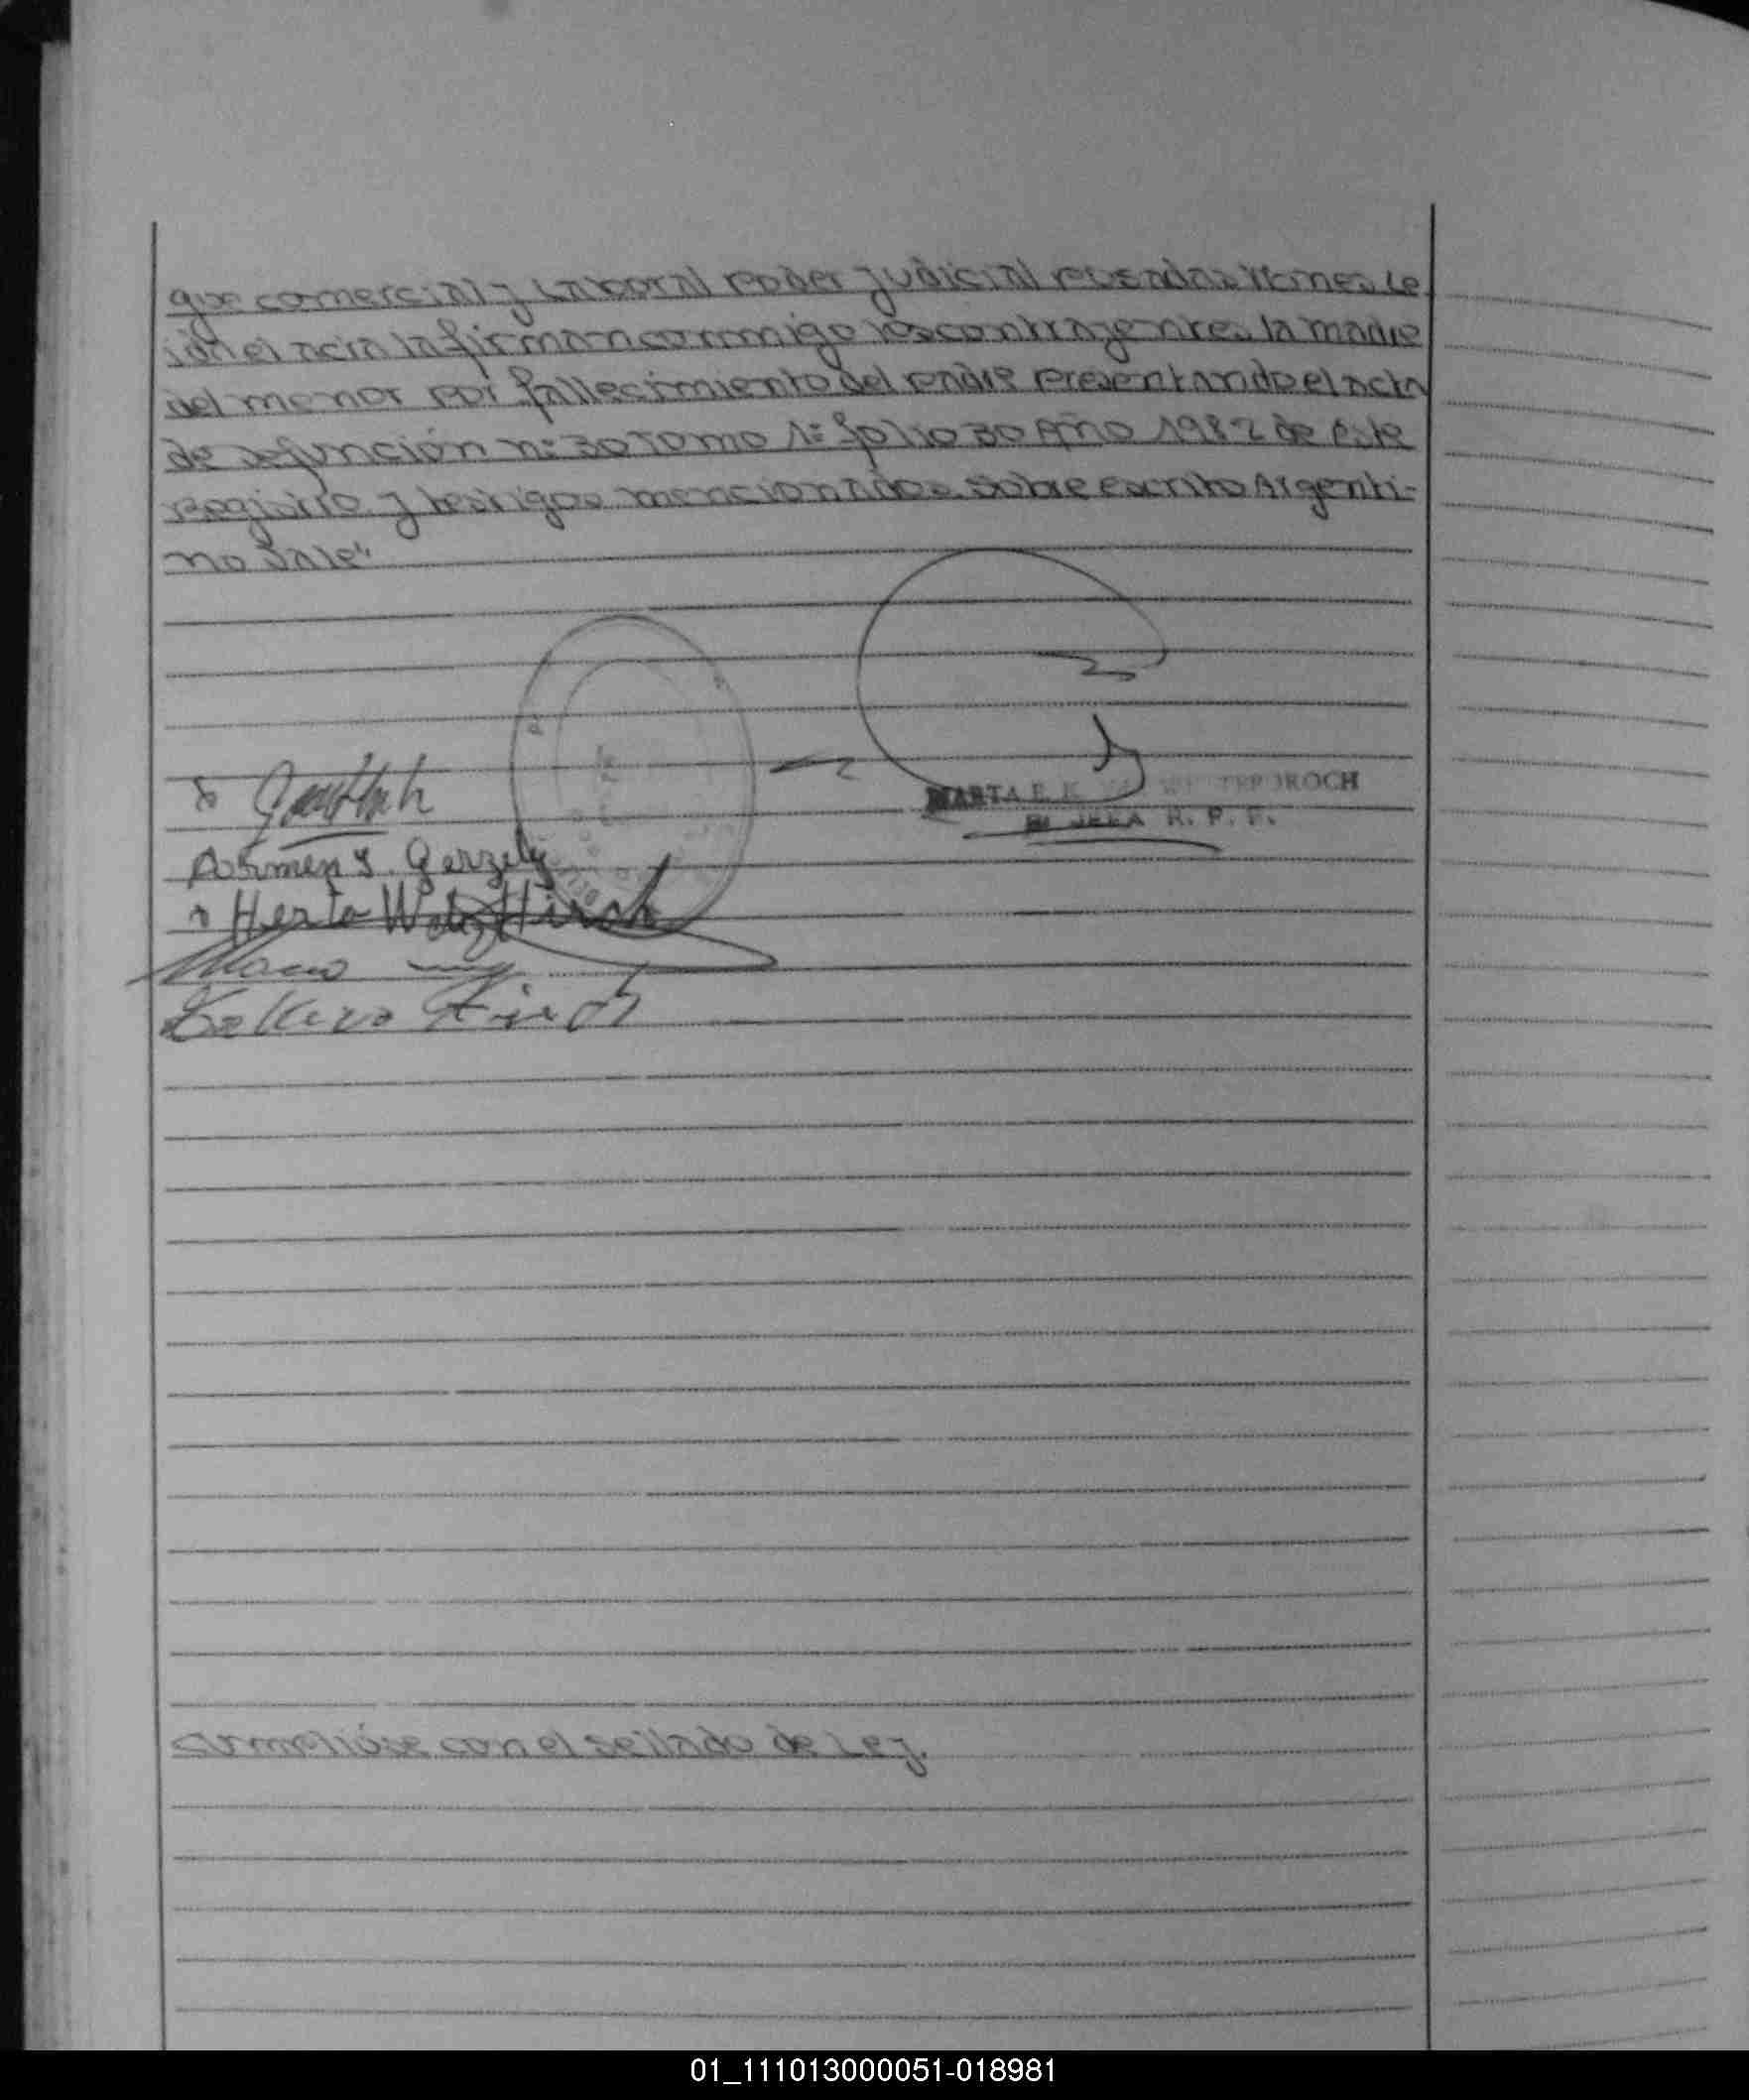 que comercial y Laboral Poder Judicial Posadas Misiones Le
ída el acta la firman conmigo los contrayentes, la madre
del menor por fallecimiento del padre presentando el acta
de defunción n: 30 Tomo 1: folio 30 Año 1982 de este
Registro y testigos mencionados sobre escrito Argenti-
no Vale"
MARTA E. K. OROCH
R. P. F.
Carmen Y. Gerzely
Herta Hirch
Cumplióse con el sellado de Ley.
01_111013000051-018981